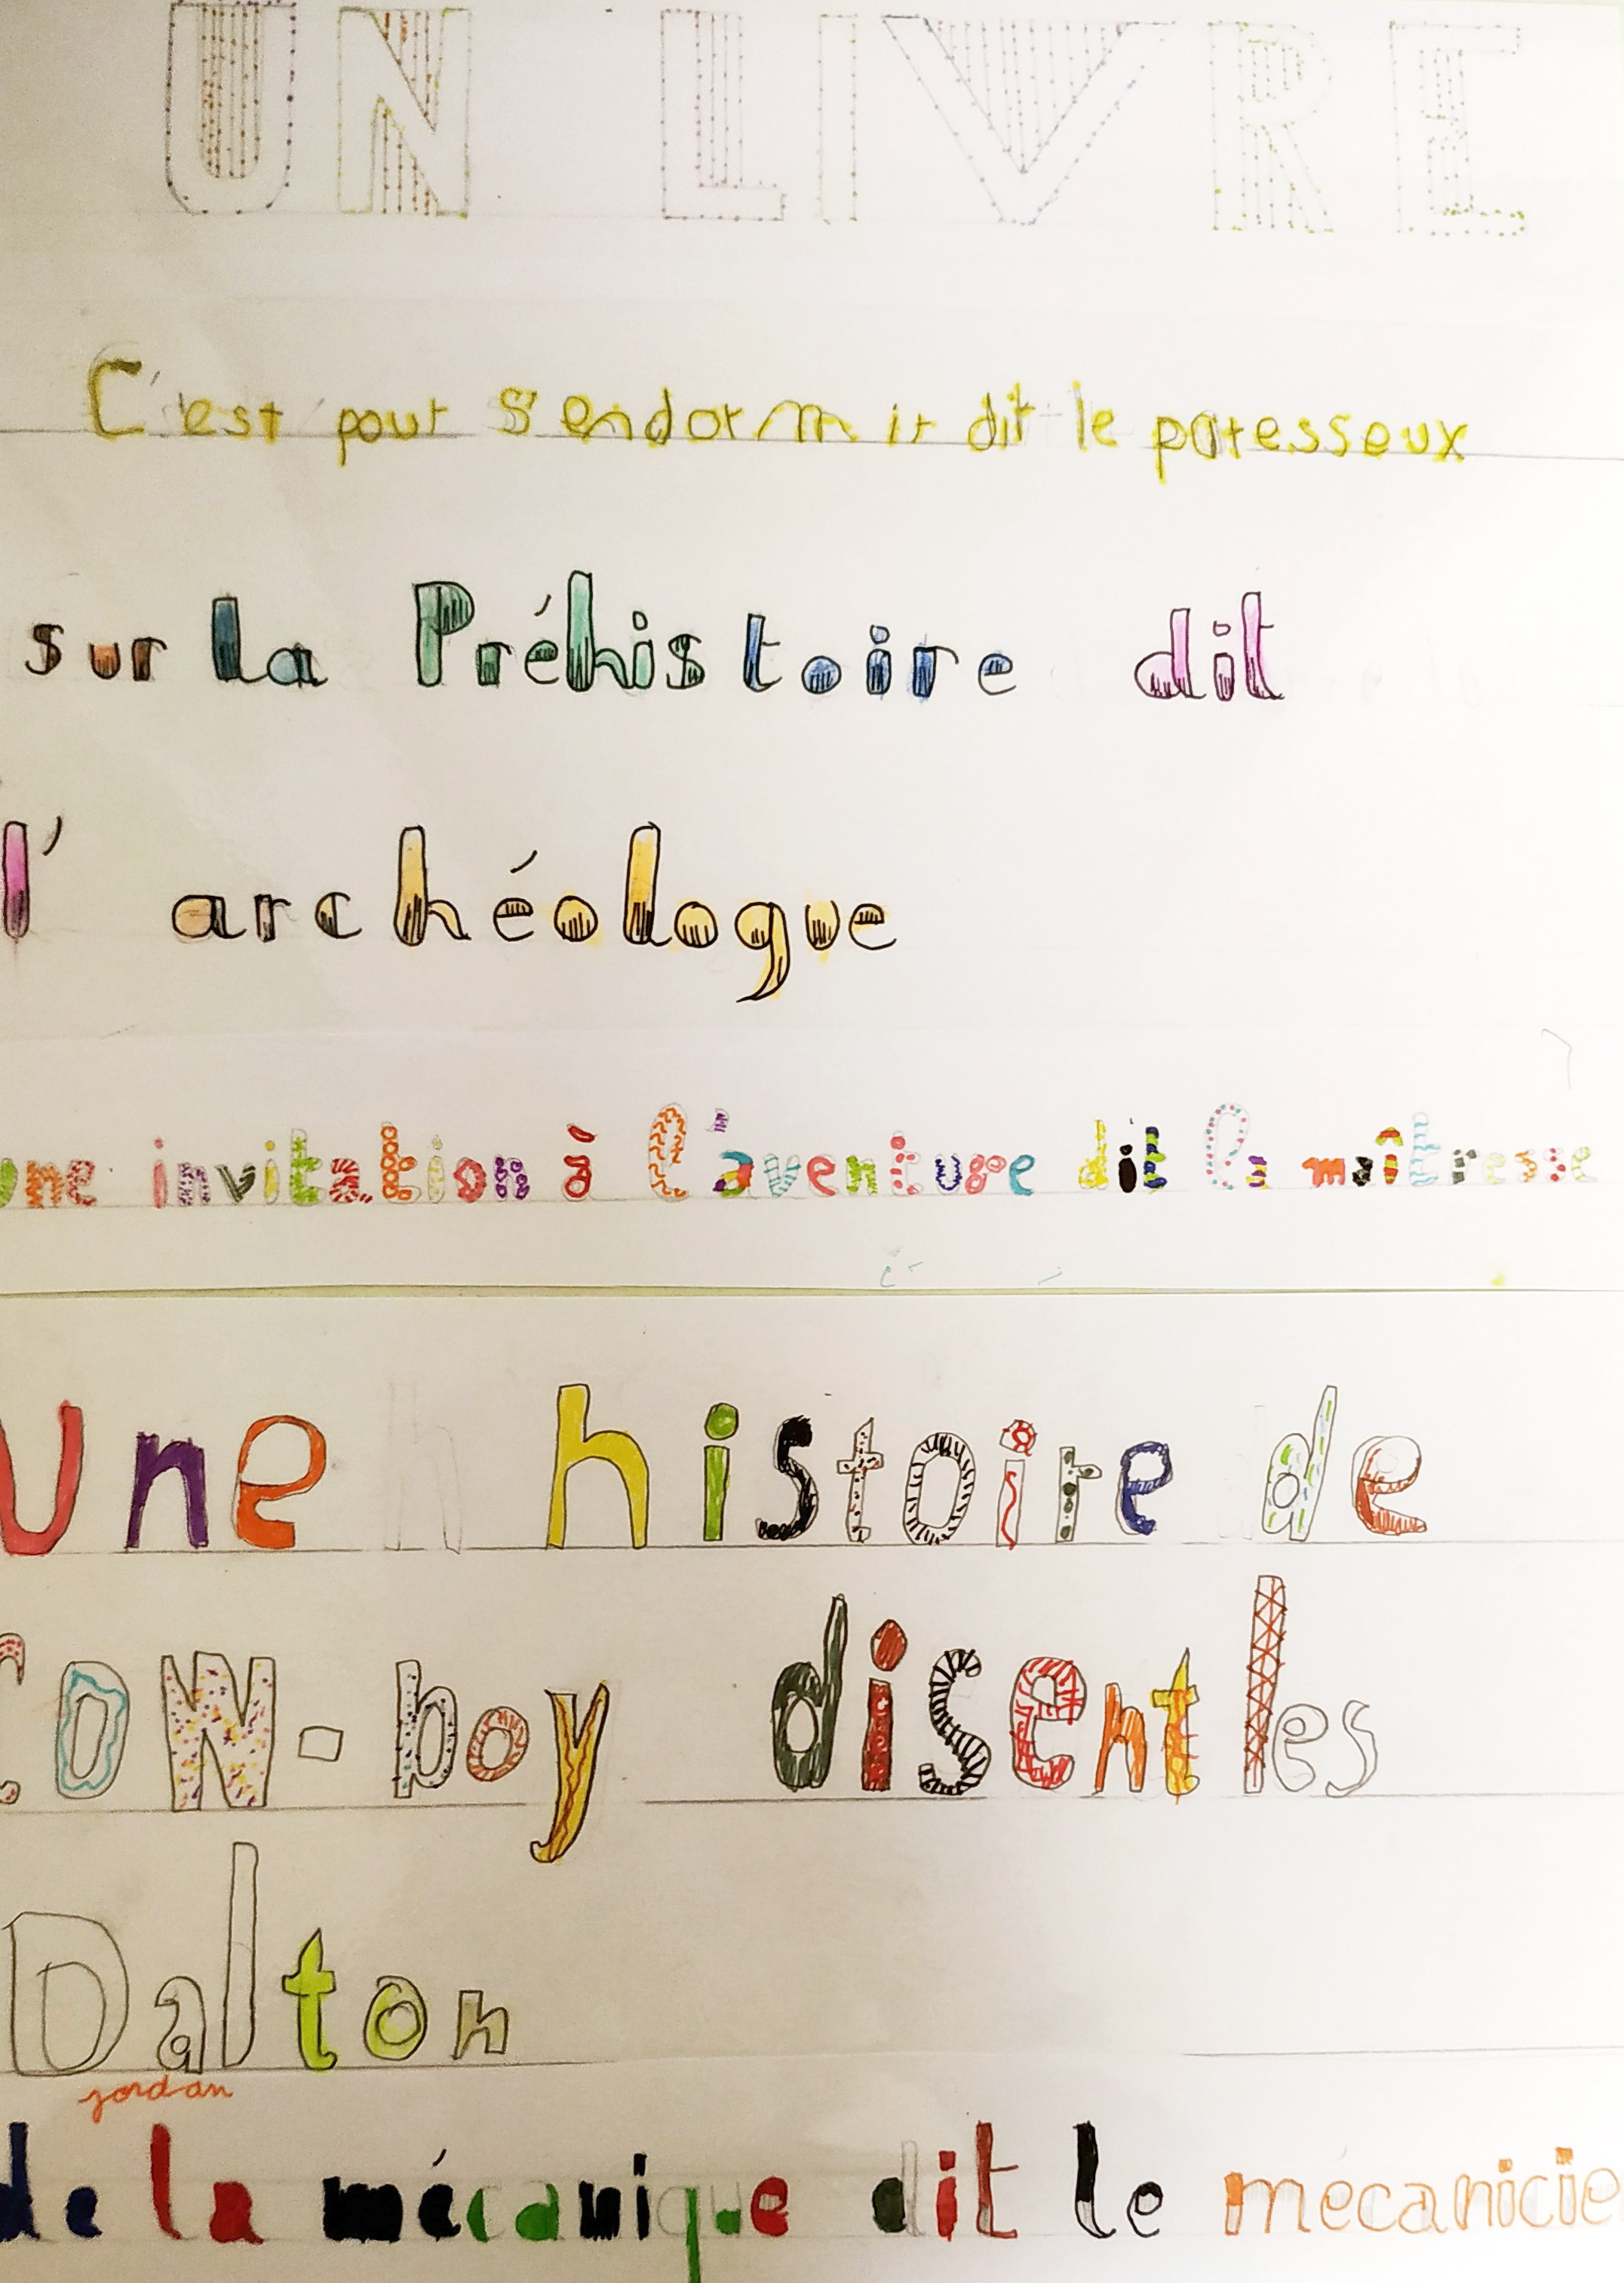 UN LIVRE
C'est pour s'endormir dit le paresseux
sur la Préhistoire dit
l'archéologue
une invitation à l'aventure dit la maîtresse
Une histoire de
cow-boy disent les
Dalton
jordan
de la mécanique dit le mécanicie